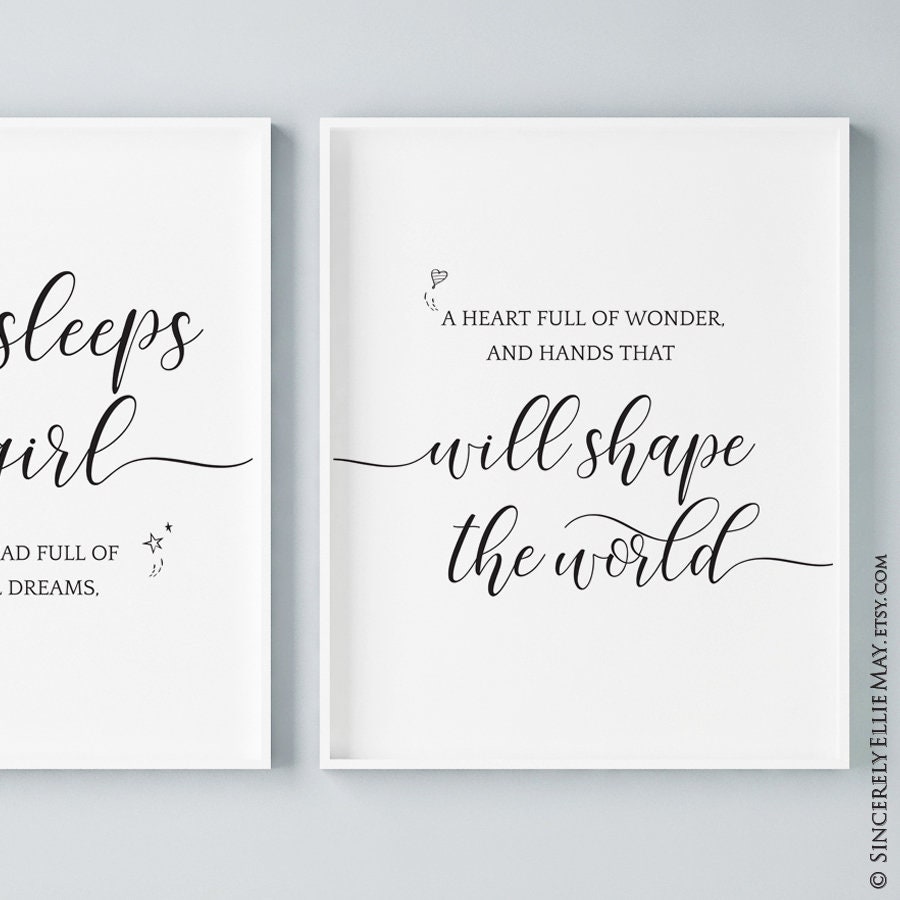 sleeps
girl
AD FULL OF
DREAMS,
A HEART FULL OF WONDER,
AND HANDS THAT
will shape
the world
© SINCERELY ELLIE MAY.ETSY.COM